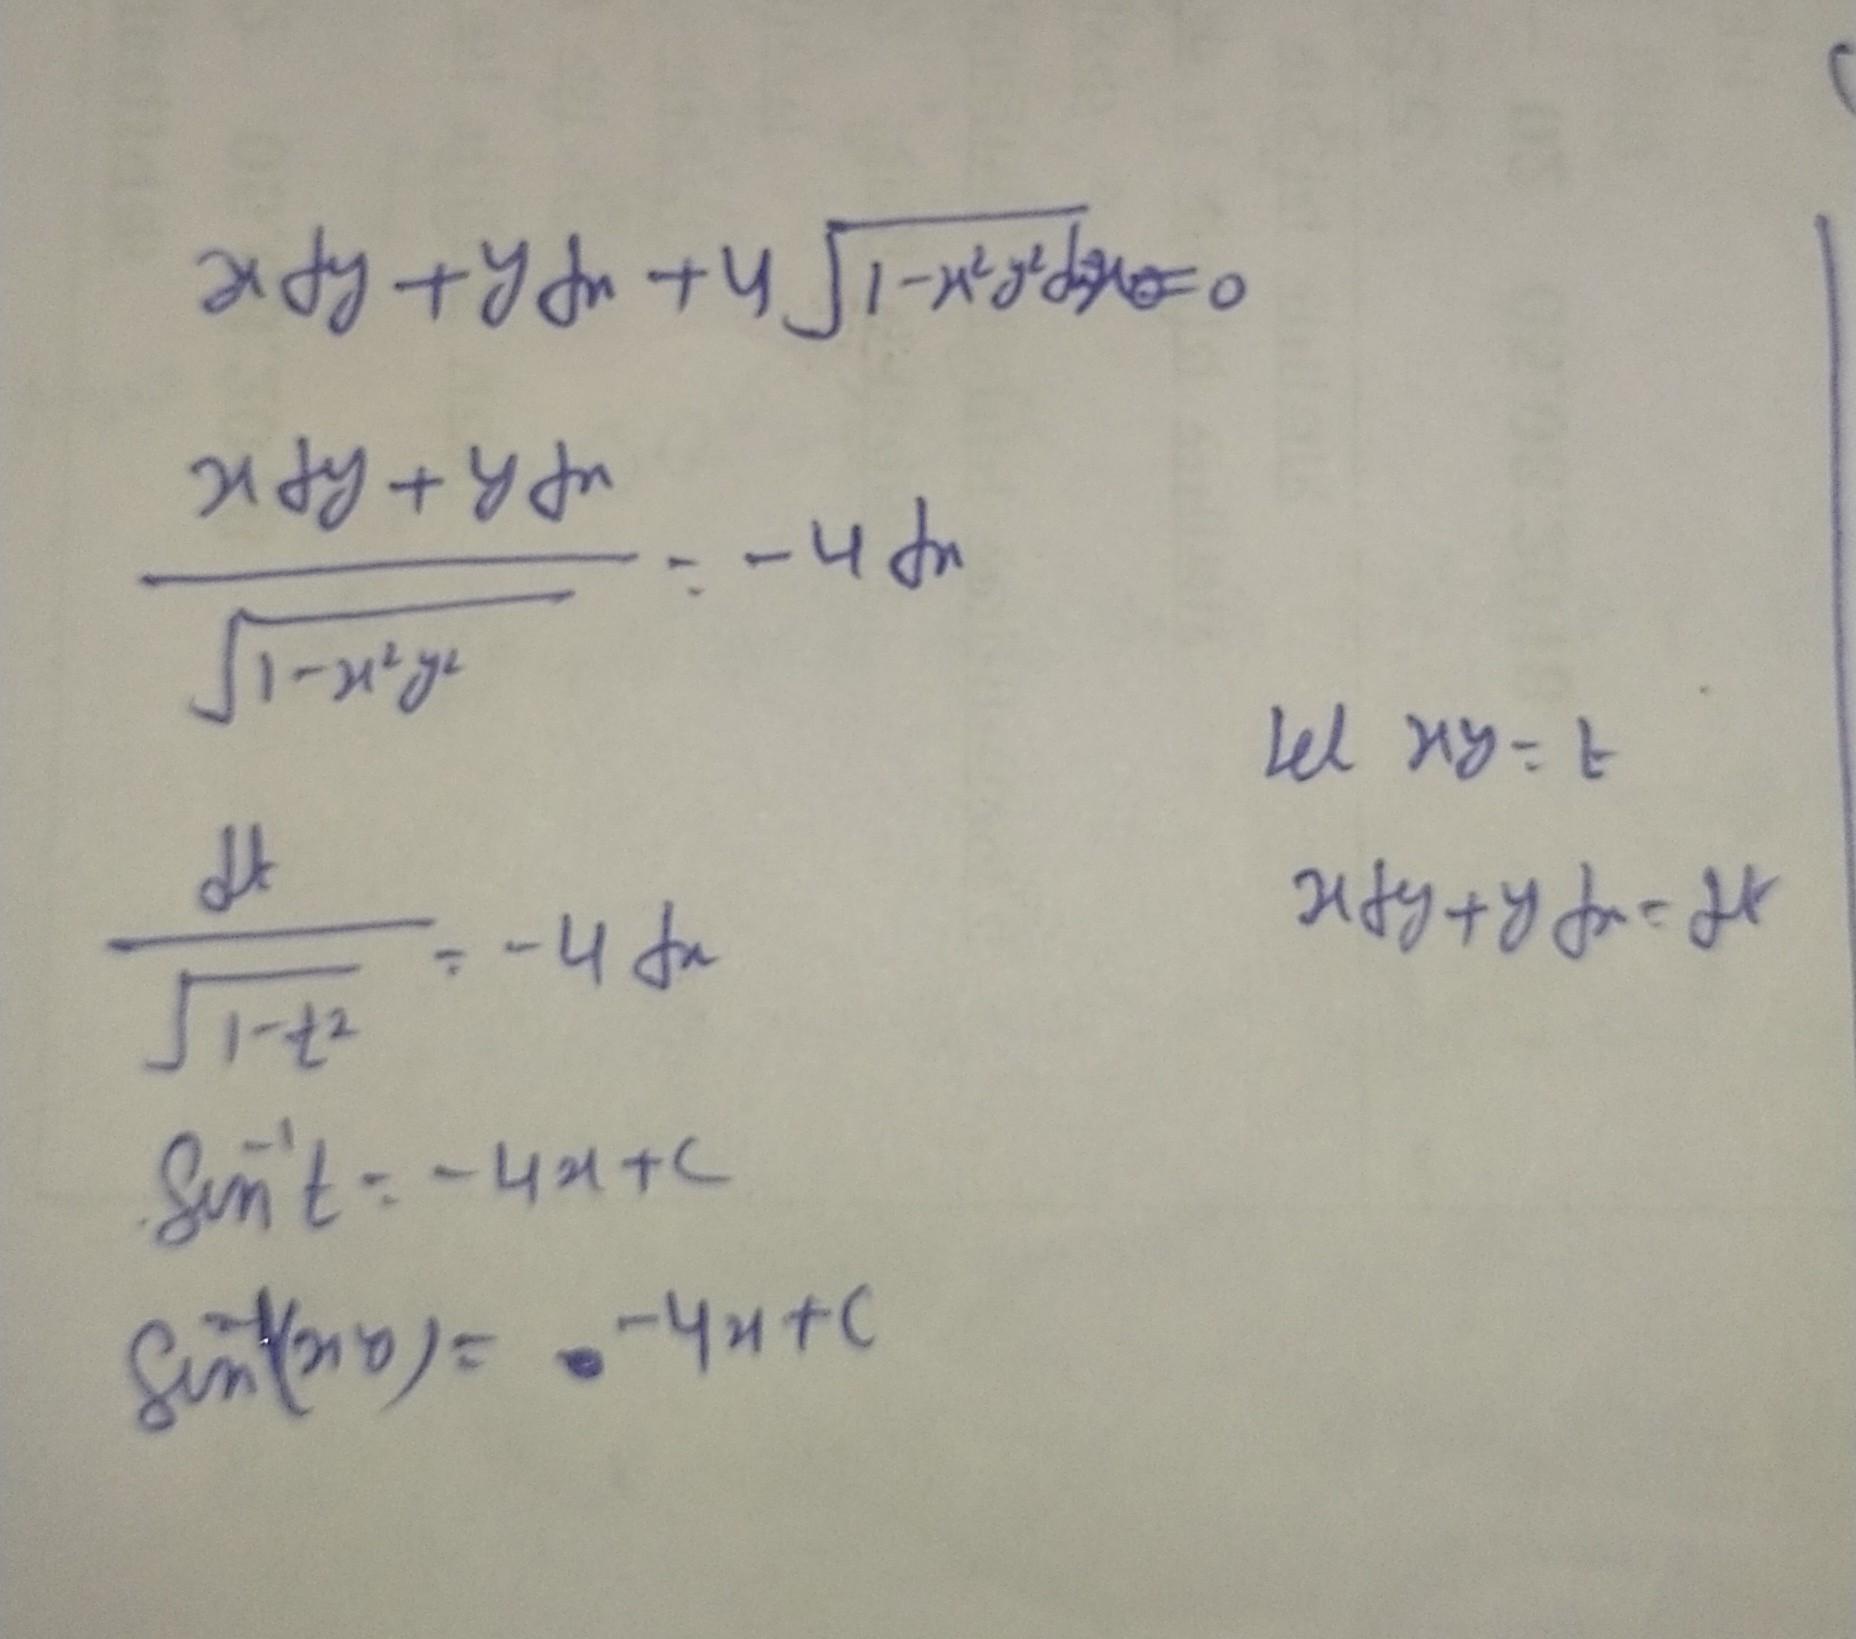 x dy + y dx + 4 √(1-x²y²) dx = 0
(x dy + y dx) / √(1-x²y²) = -4 dx
Let xy = t
x dy + y dx = dt
dt / √(1-t²) = -4 dx
Sin⁻¹t = -4x + C
Sin⁻¹(xy) = -4x + C